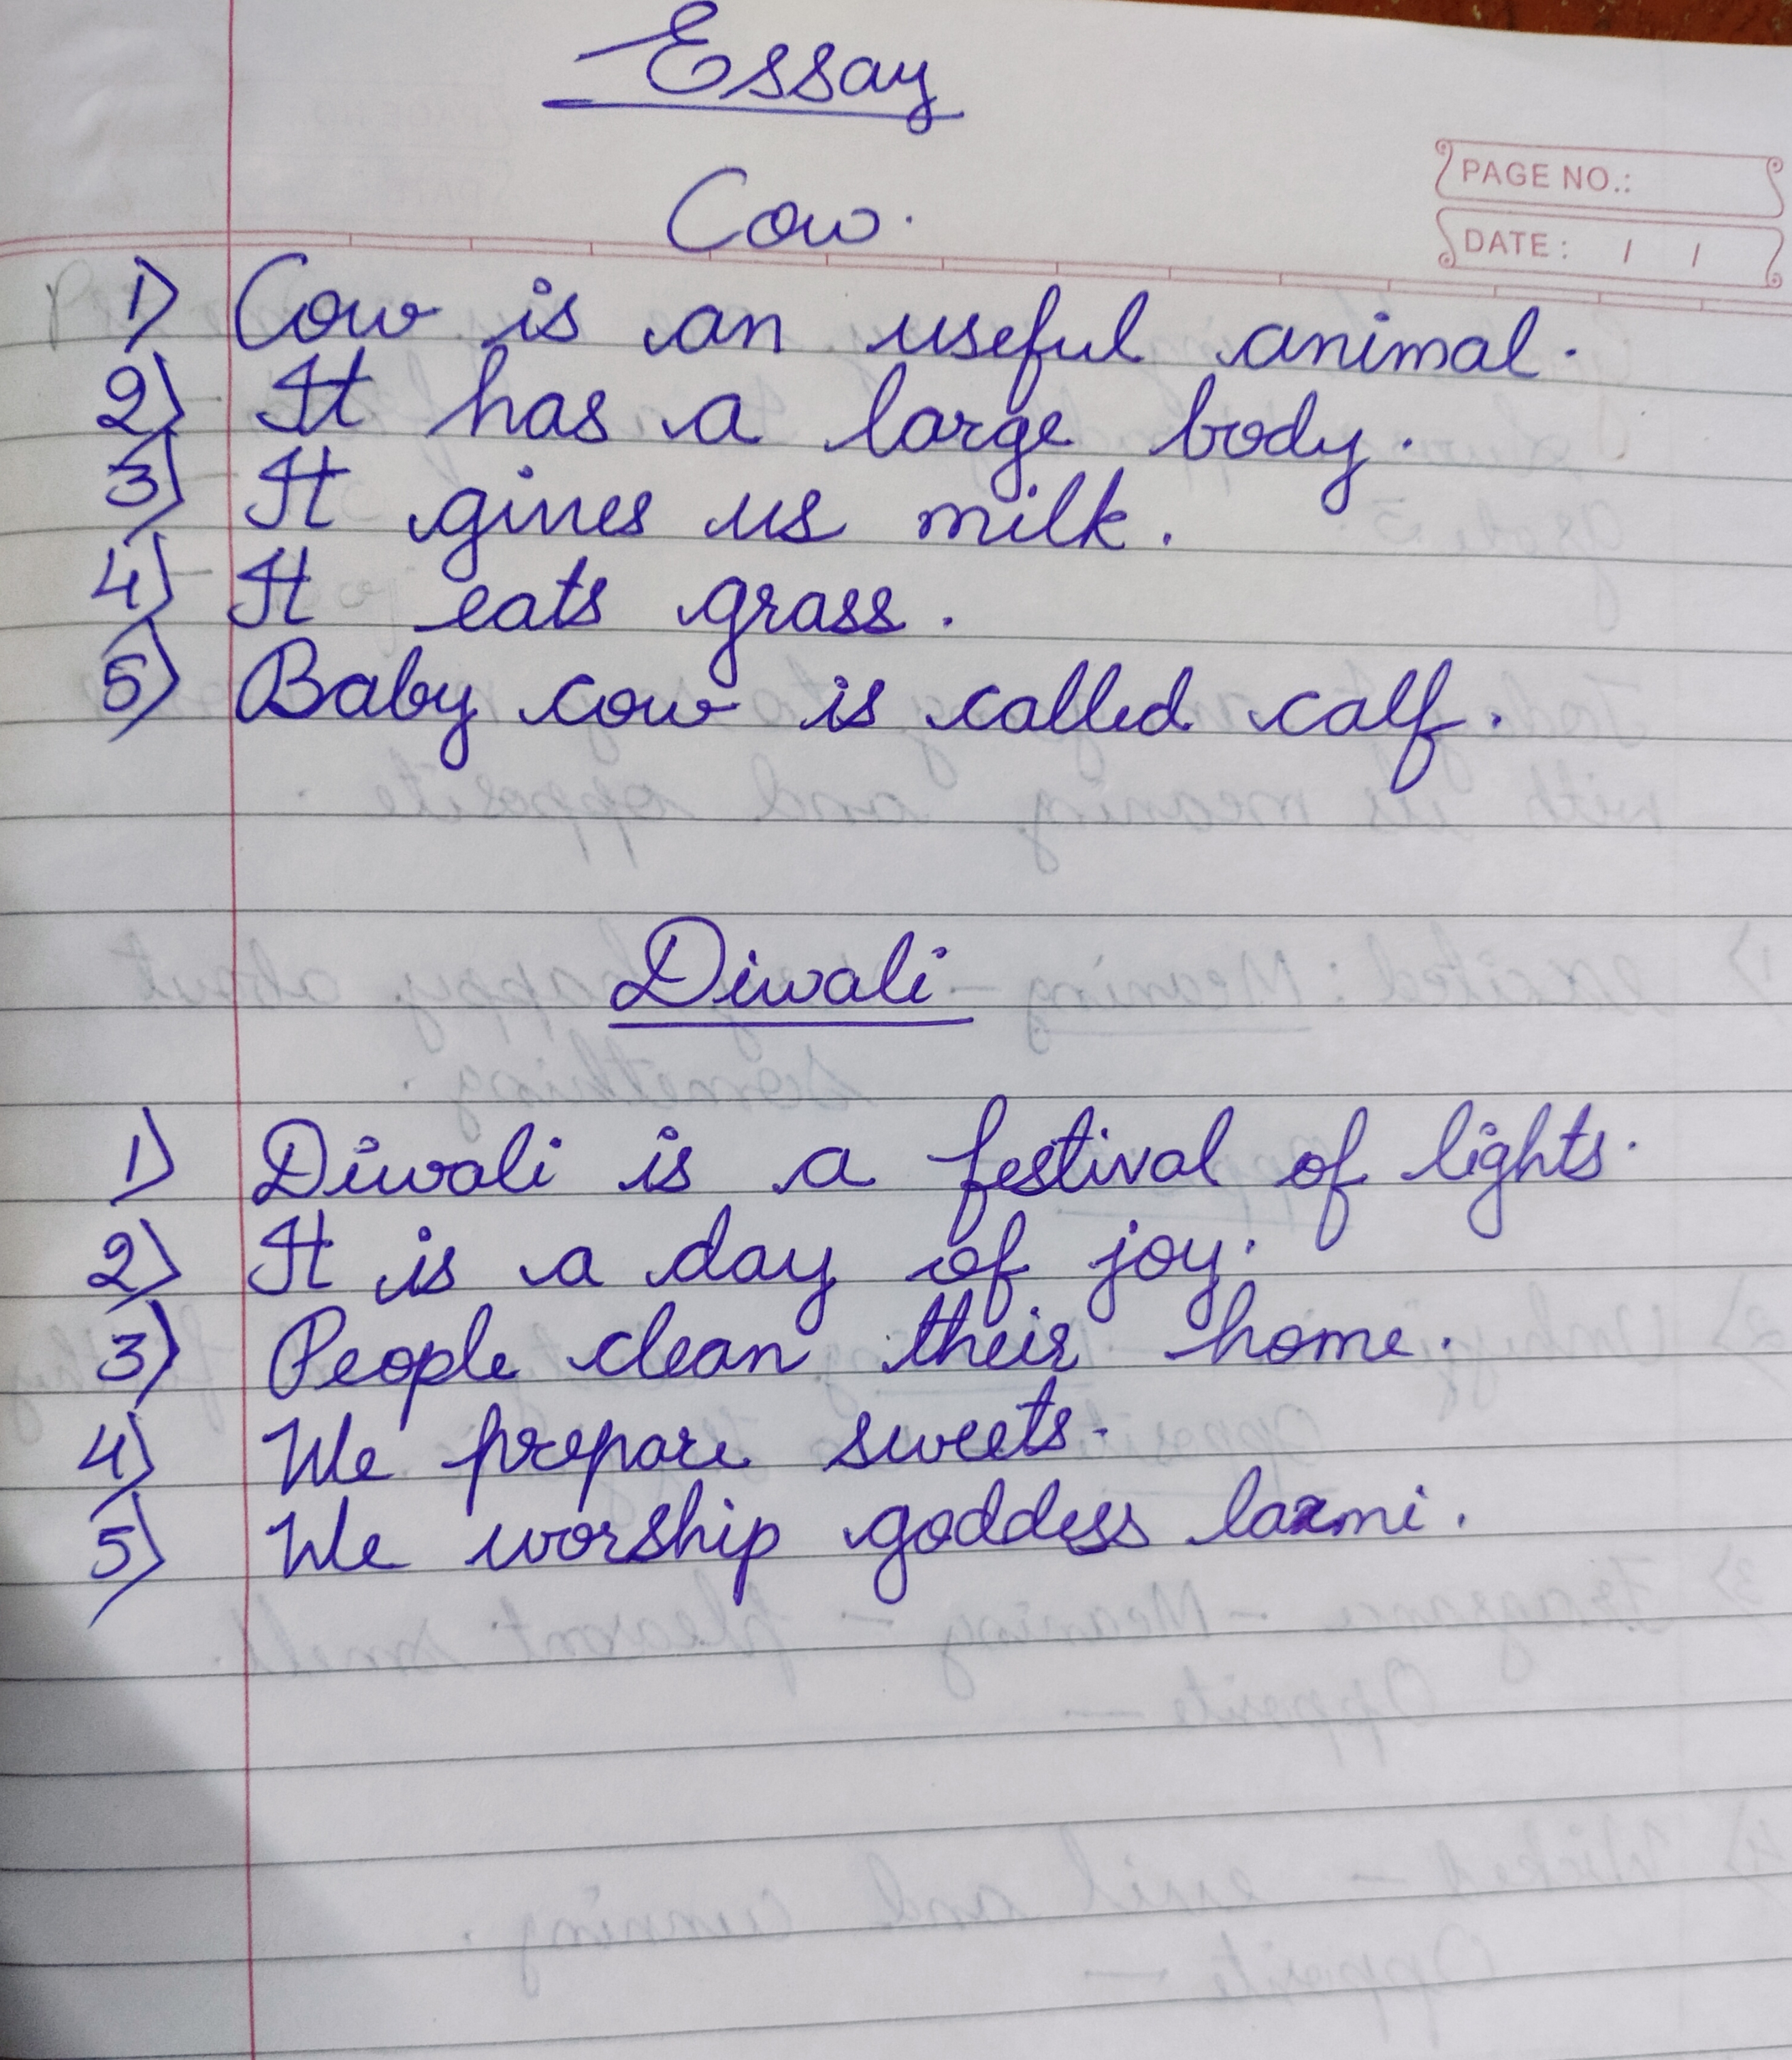 Essay
Cow.
PAGE NO.:
DATE: / /
1) Cow is an useful animal.
2) It has a large body.
3) It gives us milk.
4) It eats grass.
5) Baby cow is called calf.
Diwali
1) Diwali is a festival of lights.
2) It is a day of joy.
3) People clean their home.
4) We prepare sweets.
5) We worship goddess laxmi.